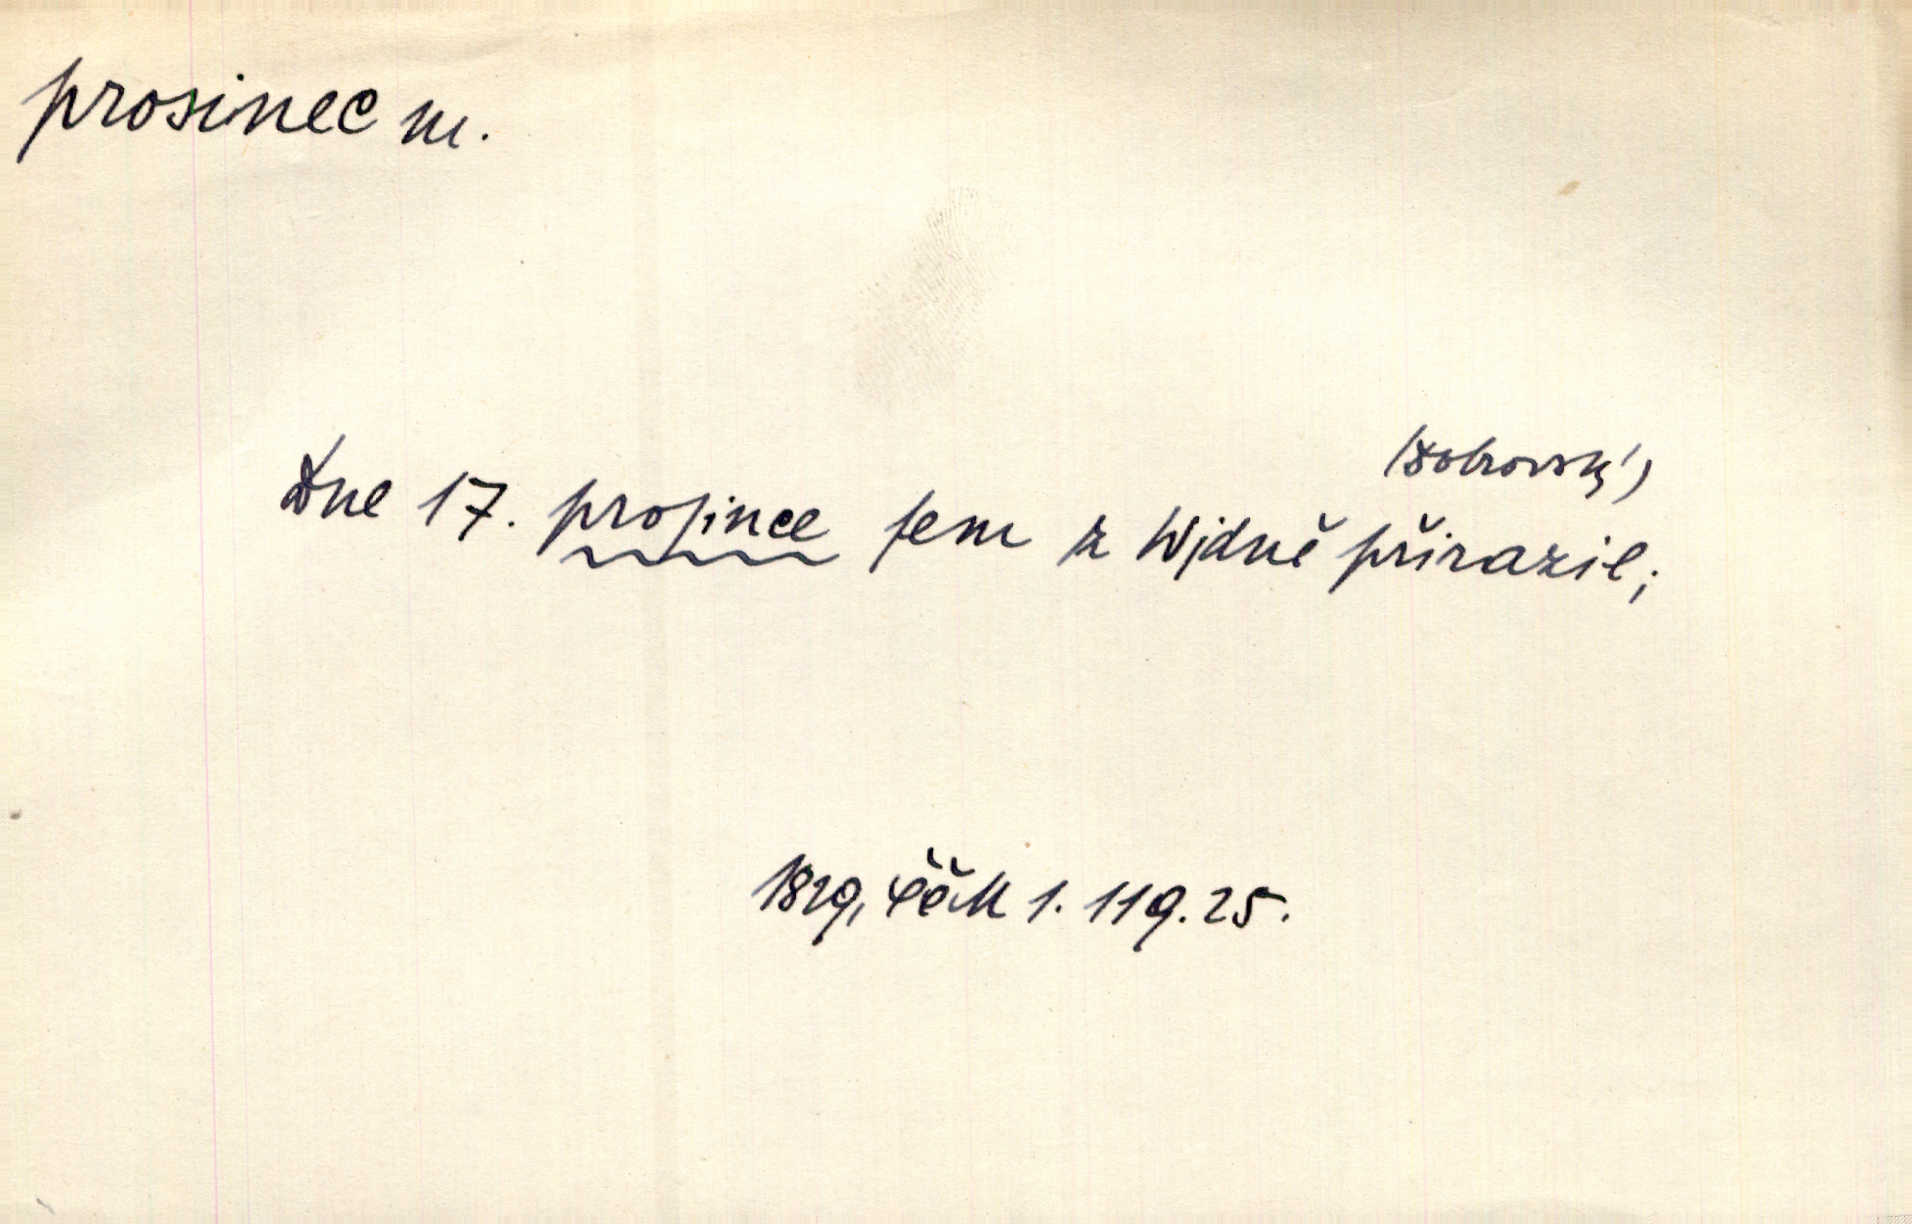 prosinec m.
(Dobrovský)
Dne 17. proſince ſem z Wjdně přirazil;
1829, ČČM 1. 119. 25.